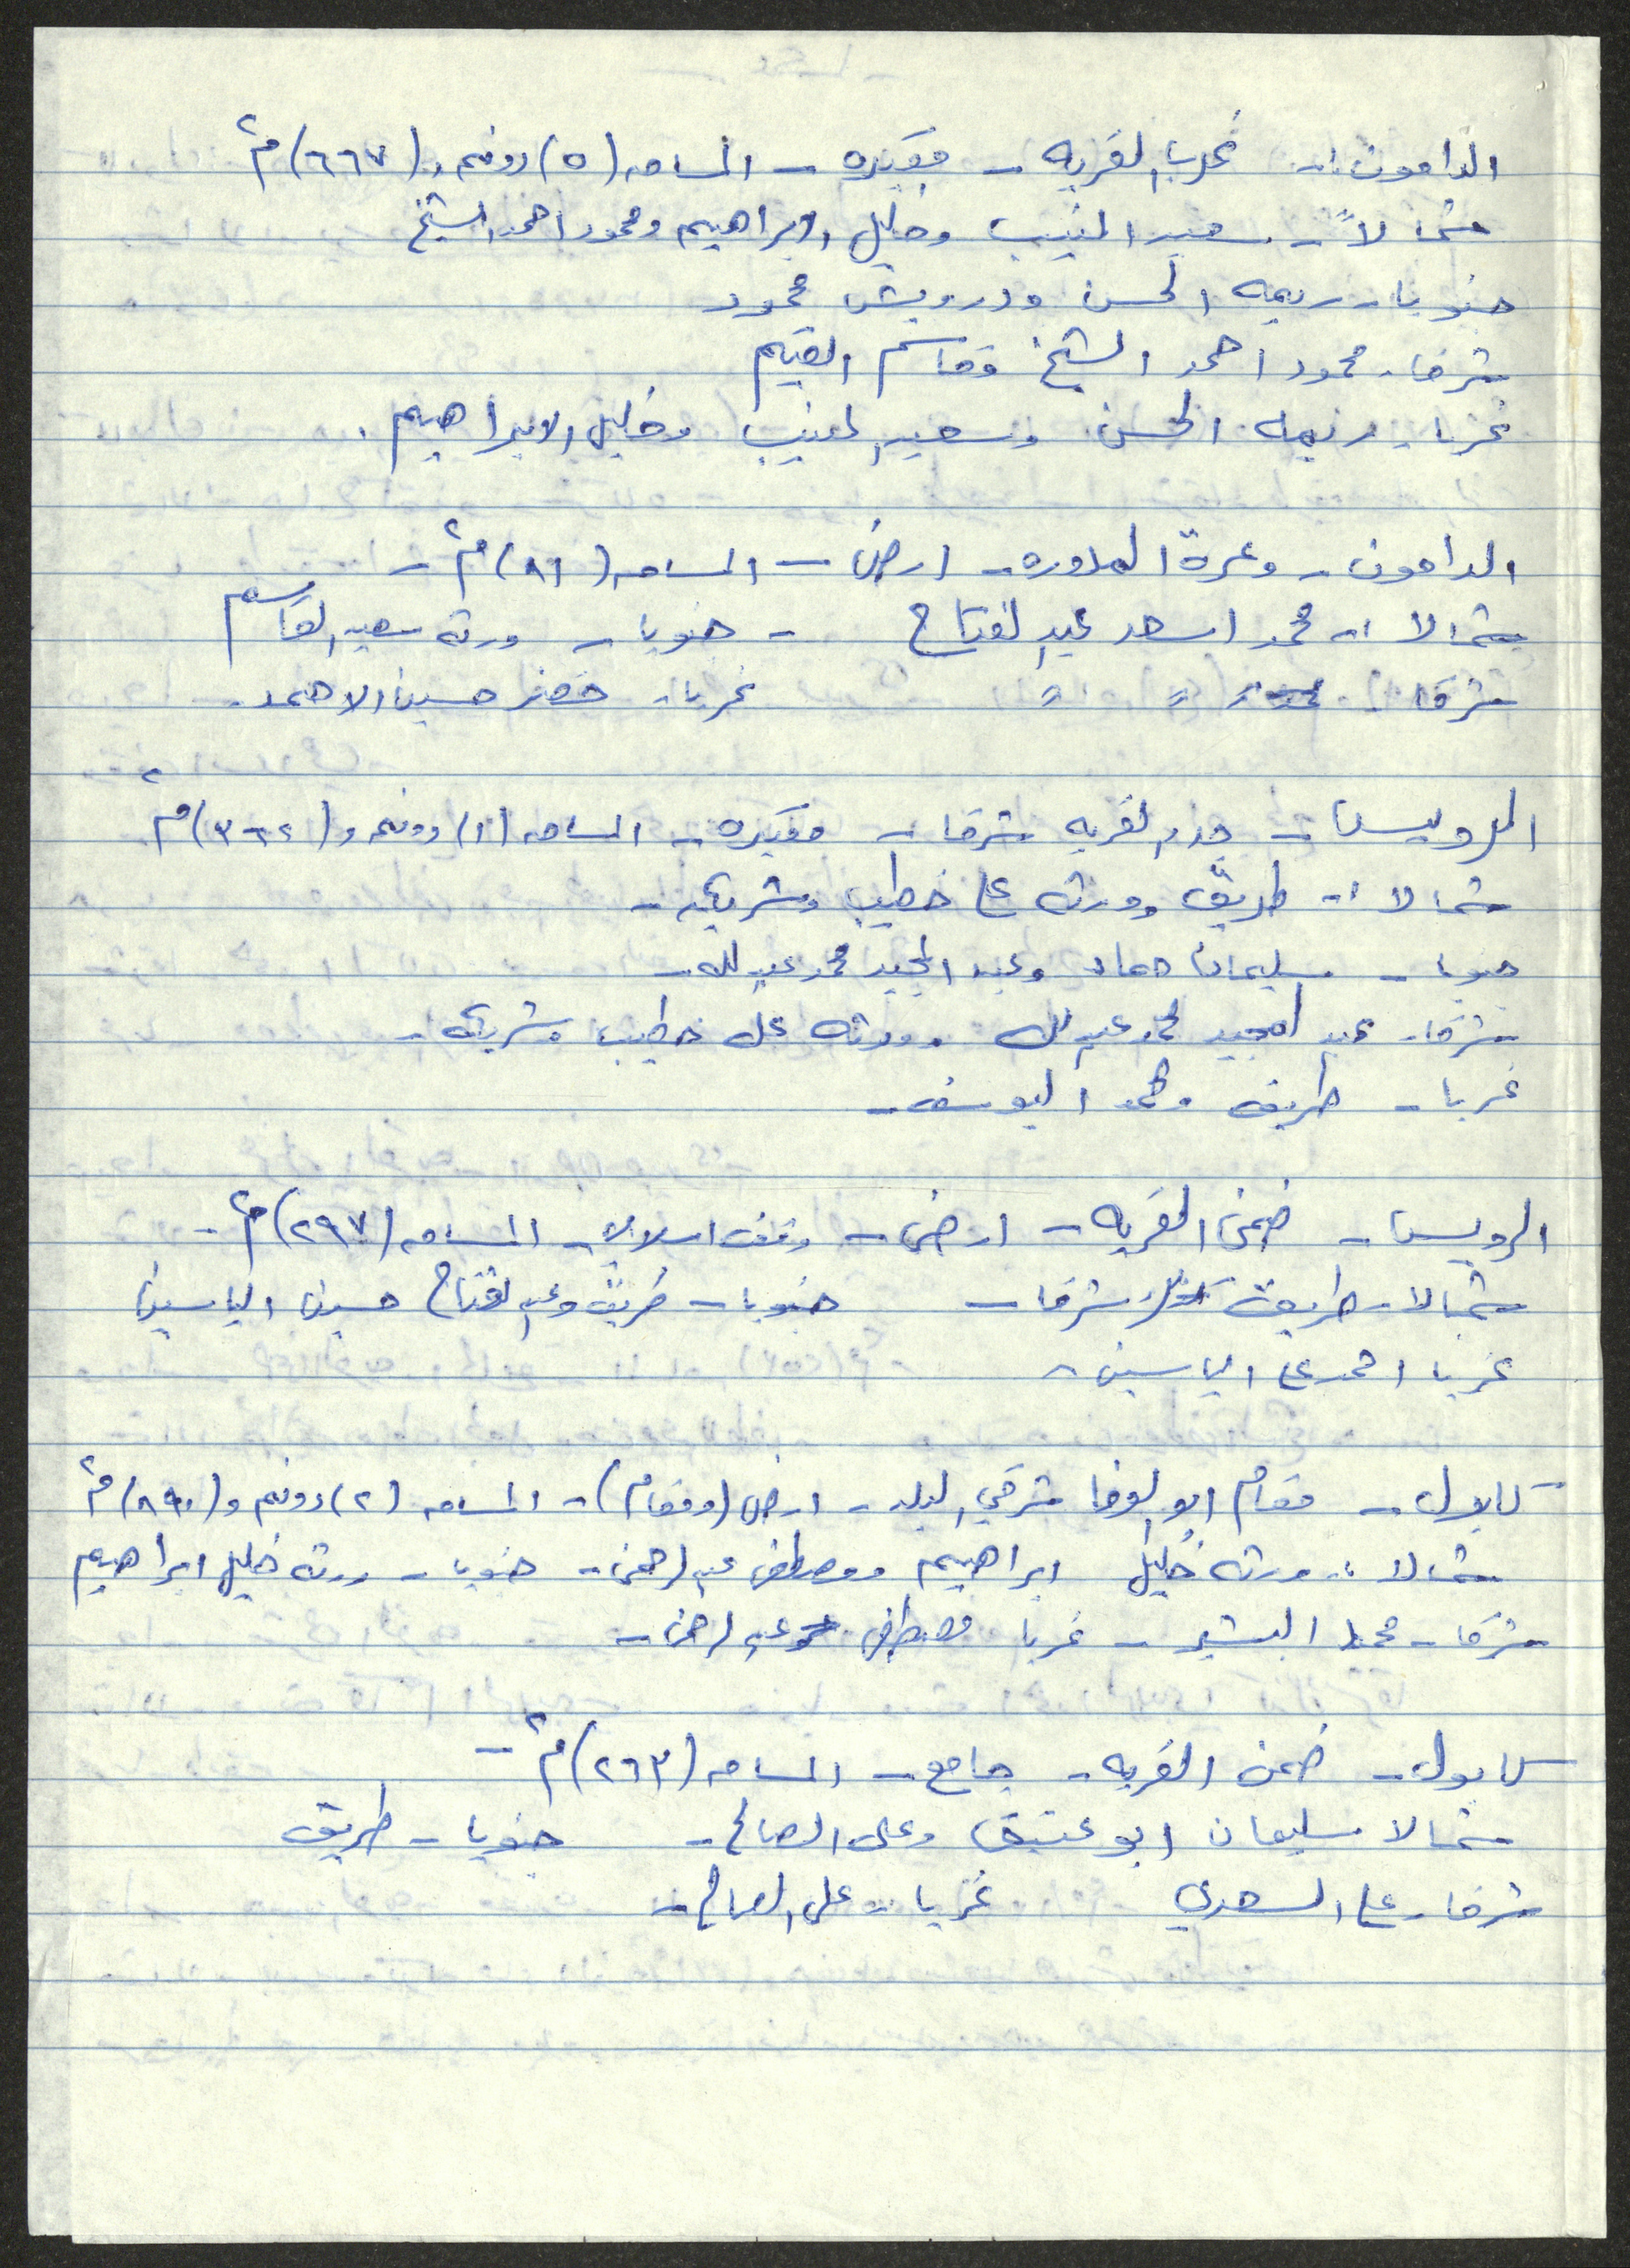 الدامون :- غرب القريه - مقبره - المساحه (٥) دونم و (٦٦٧) م٢
شمالاً - سعيد المنيب وخليل الابراهيم ومحمود احمد الشيخ
جنوبا - ريمه الحسن ودرويش محمود
شرقا - محمود احمد الشيخ وقاسم القيم
غربا - ريمه الحسن وسعيد المنيب وخليل الابراهيم .
الدامون - وعرة المدوره - ارض - المساحه (٨١) م٢ -
شمالا :- محمد اسعد عبد الفتاح - جنوبا - ورثه سعيد القاسم
شرقا " " " غربا - خضر حسين الاحمد -
الرويس - جدر القريه شرقا - مقبره - المساحه (١) دونم و (٣٦٤) م٢
شمالا :- طريق وورثه علي خطيب وشريكه -
جنوبا - سليمان حماد وعبد المجيد محمد عبد الله -
شرقا - عبد المجيد محمد عبد الله وورثه علي خطيب وشريكه -
غربا - طريق ومحمد اليوسف -
الرويس - ضمن القريه - ارض - وقف اسلامي - المساحه (٢٩٧) م٢ -
شمالا - طريق شرقا - جنوبا - طريق وعبد الفتاح حسين الياسين
غربا احمد علي الياسين -
كابول - مقام ابو الوفا شرقي البلد - ارض (ومقام) - المساحه (٢) دونم و (٨٩٠) م٢
شمالا :- ورثه خليل ابراهيم ومصطفى عبد الرحمن - جنوبا - ورثه خليل ابراهيم
شرقا - محمد البشير - غربا مصطفى عبد الرحمن -
كابول - ضمن القريه - جامع - المساحه (٢٦٣) م٢ -
شمالا سليمان ابو وعلي الصالح - جنوبا - طريق
شرقا - علي السعدي غربا - علي الصالح -